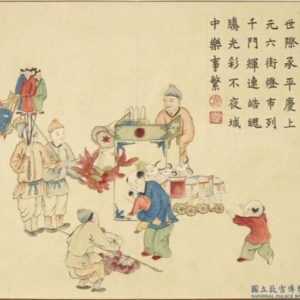 世際承平慶上
元六街燈市列
千門輝連皓魄
騰光彩不夜城
中樂事繁
國立故宮博物
NATIONAL PALACE